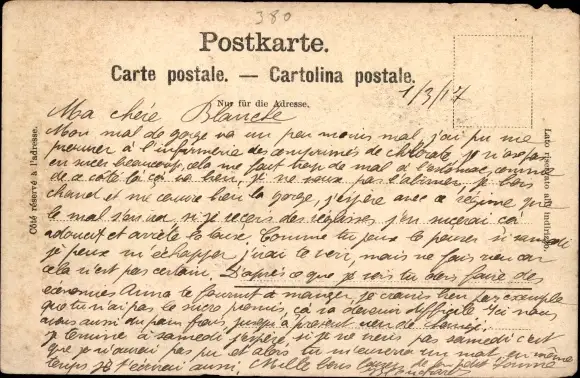 380
Postkarte.
Carte postale. — Cartolina postale.
1/3/17
Nur für die Adresse.
Côté réservé à l'adresse.
Lato riservato all'indirizzo.
Ma chère Blanche
Mon mal de gorge va un peu moins mal, j'ai pu me
procurer à l'infirmerie des comprimés de chlorate je n'ose pas
en sucer beaucoup, cela me fait trop de mal à l'estomac, comme
de ce côté là ça va bien, je ne veux pas l'abîmer. Je bois
chaud et me couvre bien la gorge, j'espère avec ce régime que
le mal s'en va. si je reçois des réglisses j'en sucerai ça
adoucit et arrête la toux. Comme tu peux le penser si samedi
je peux m'échapper j'irai te voir, mais ne fais rien car
cela n'est pas certain. D'après ce que je vois tu dois faire des
économies Anna te fournit à manger, je crains bien par exemple
que tu n'ai pas le sucre promis, ça va devenir difficile. Ici nous
avons aussi du pain frais, jusqu'à présent rien de changé.
je termine à samedi j'espère, si je ne viens pas samedi c'est
que je n'aurai pas pu et alors tu m'enverras un mot, en même
temps je t'écrirai aussi. Mille bons baisers de ton petit homme
Blanchard